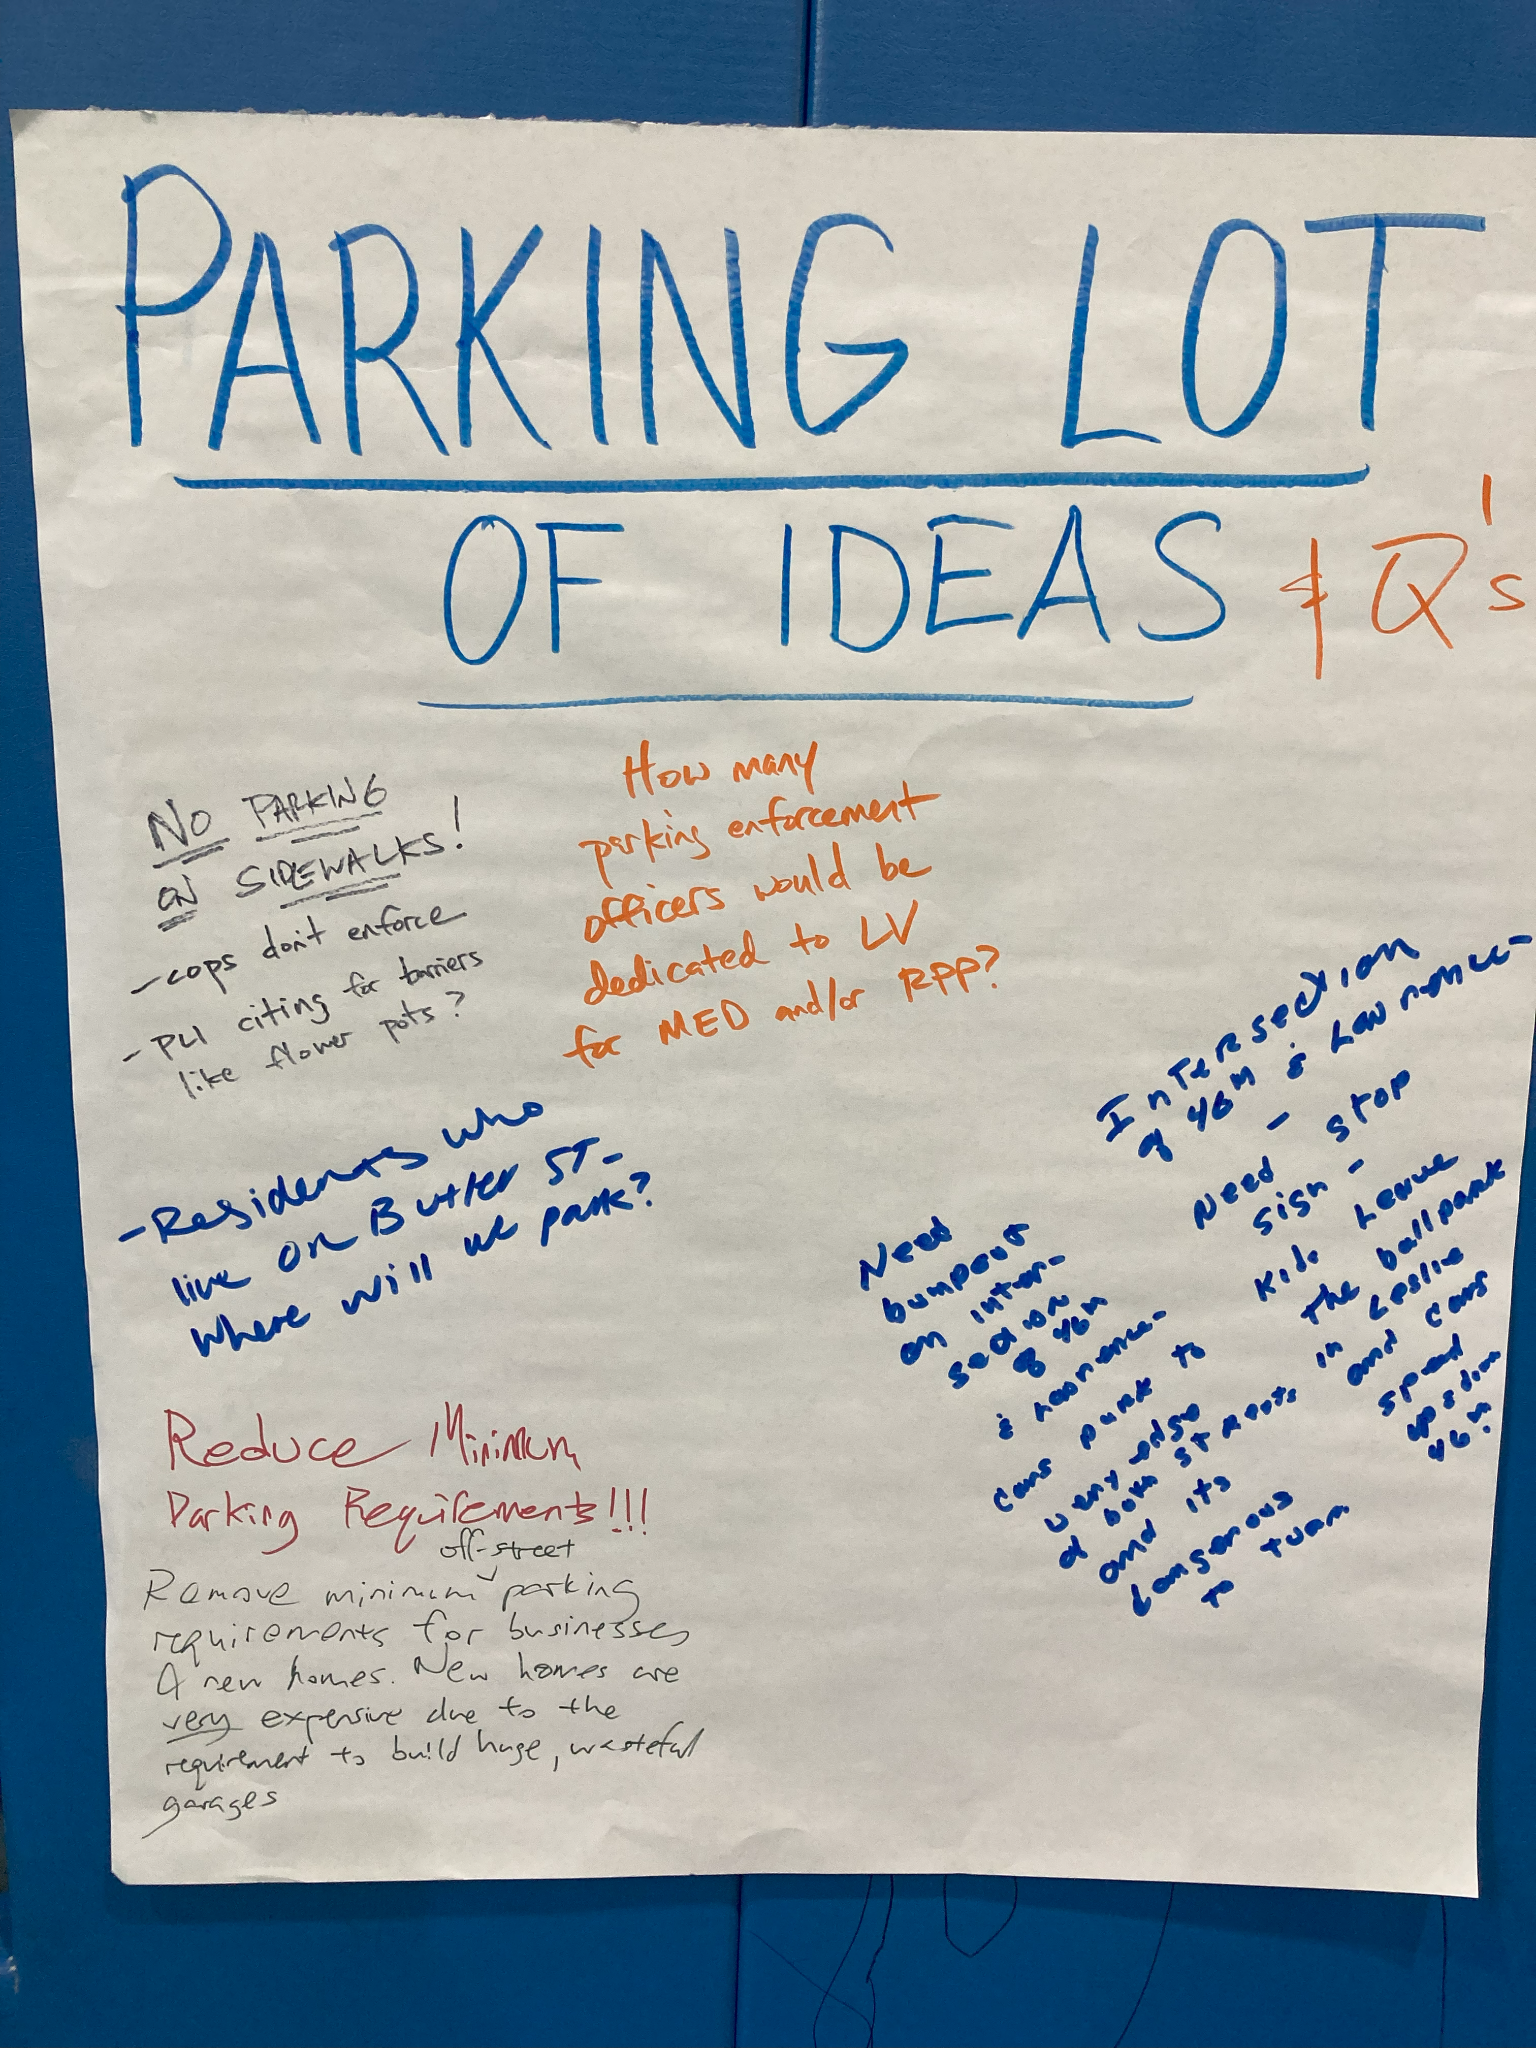 PARKING LOT
OF IDEAS & Q's
NO PARKING
ON SIDEWALKS!
- cops don't enforce
- PLI citing for barriers
like flower pots?
How many
parking enforcement
officers would be
dedicated to LV
for MED and/or RPP?
- Residents who
live on Butler ST-
where will we park?
Intersection
of 46th & Lawrence-
- Need stop
sign -
Kids leave
the ballpark
in Leslie
and cars
speed
up & down
46th
Need
bumpout
on inter-
section
of 46th
& Lawrence-
cars park to
very edge
of both streets
and its
dangerous
to turn
Reduce Minimum
Parking Requirements!!!
off-street
Remove minimum parking
requirements for businesses
& new homes. New homes are
very expensive due to the
requirement to build huge, wasteful
garages